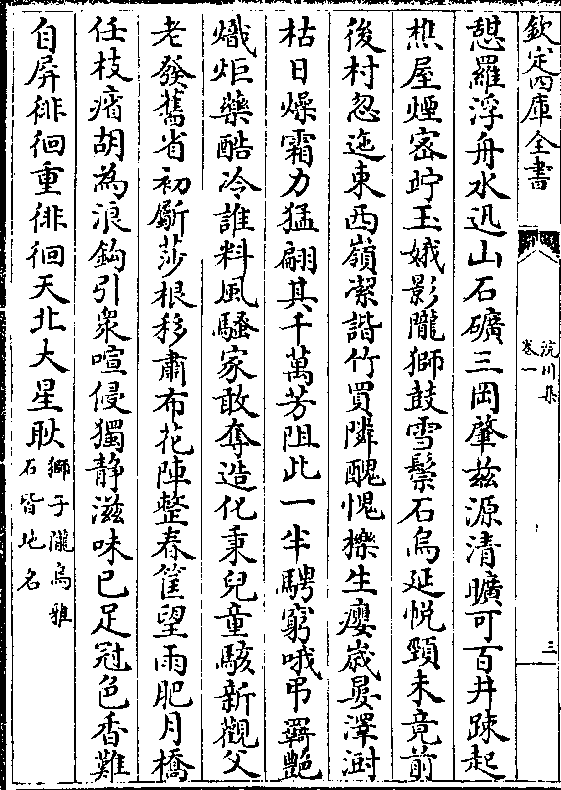 欽定四庫全書
浣川集
卷一
三
憇羅浮舟水迅山石礦三岡肇兹源清曠可百井踈起
樵屋煙密竚玉娥影隴獅鼓雪鬃石烏延恱頸未竟前
後村忽迤東西嶺潔諧竹買隣醜愧櫟生癭嵗晏澤澍
枯日燥霜力猛翩其千萬芳阻此一半騁窮哦弔羇艷
熾炬藥酷冷誰料風騷家敢奪造化秉兒童駭新觀父
老發舊省初斸莎根移肅布花陣整春筐望雨肥月橋
任枝㾪胡為浪鈎引衆喧侵獨静滋味已足冠色香難
自屏徘徊重徘徊天北大星耿獅子瀧烏雅
石皆地名